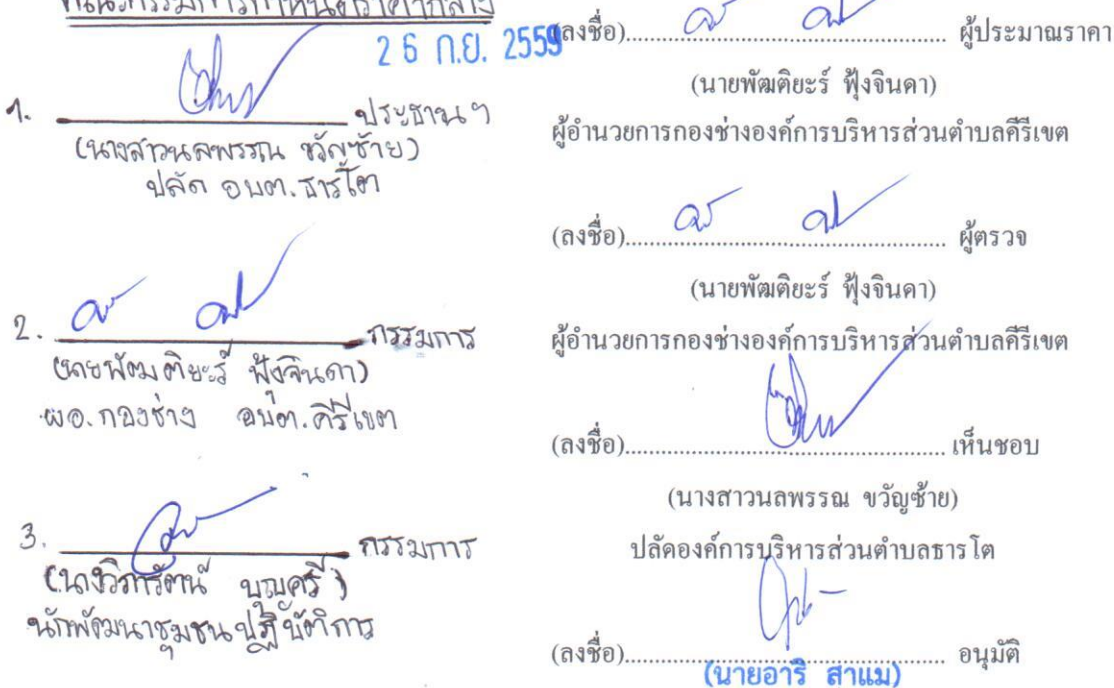 คณะกรรมการกำหนดราคากลาง
26 ก.ย. 2559
1. ประธานฯ
(นางสาวนลพรรณ ขวัญซ้าย)
ปลัด อบต.ธารโต
2. กรรมการ
(นายพัฒติยะร์ ฟุ้งจินดา)
ผอ.กองช่าง อบต.คีรีเขต
3. กรรมการ
(นางวิภารัตน์ บุญศรี)
นักพัฒนาชุมชนปฏิบัติการ
(ลงชื่อ)........................................ ผู้ประมาณราคา
(นายพัฒติยะร์ ฟุ้งจินดา)
ผู้อำนวยการกองช่างองค์การบริหารส่วนตำบลคีรีเขต
(ลงชื่อ)........................................ ผู้ตรวจ
(นายพัฒติยะร์ ฟุ้งจินดา)
ผู้อำนวยการกองช่างองค์การบริหารส่วนตำบลคีรีเขต
(ลงชื่อ)........................................ เห็นชอบ
(นางสาวนลพรรณ ขวัญซ้าย)
ปลัดองค์การบริหารส่วนตำบลธารโต
(ลงชื่อ)........................................ อนุมัติ
(นายอารี สาแม)